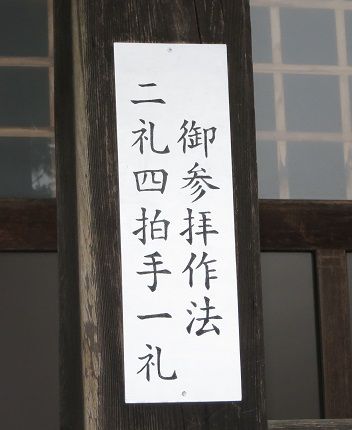 御参拝作法
二礼四拍手一礼